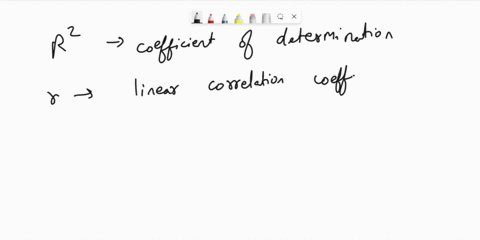 R² → coefficient of determination
r → linear correlation coeff.